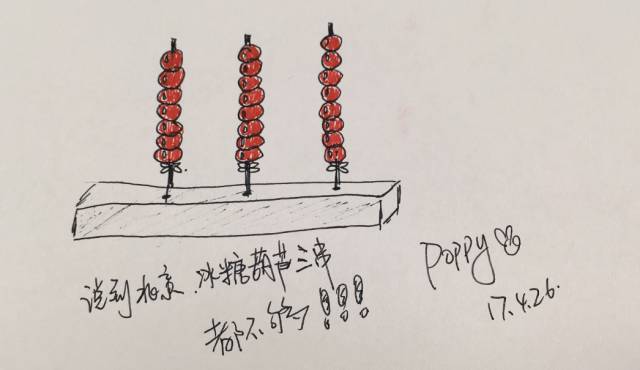 说到北京,冰糖葫芦三串
都不够!!!
POPPY
17.4.26.